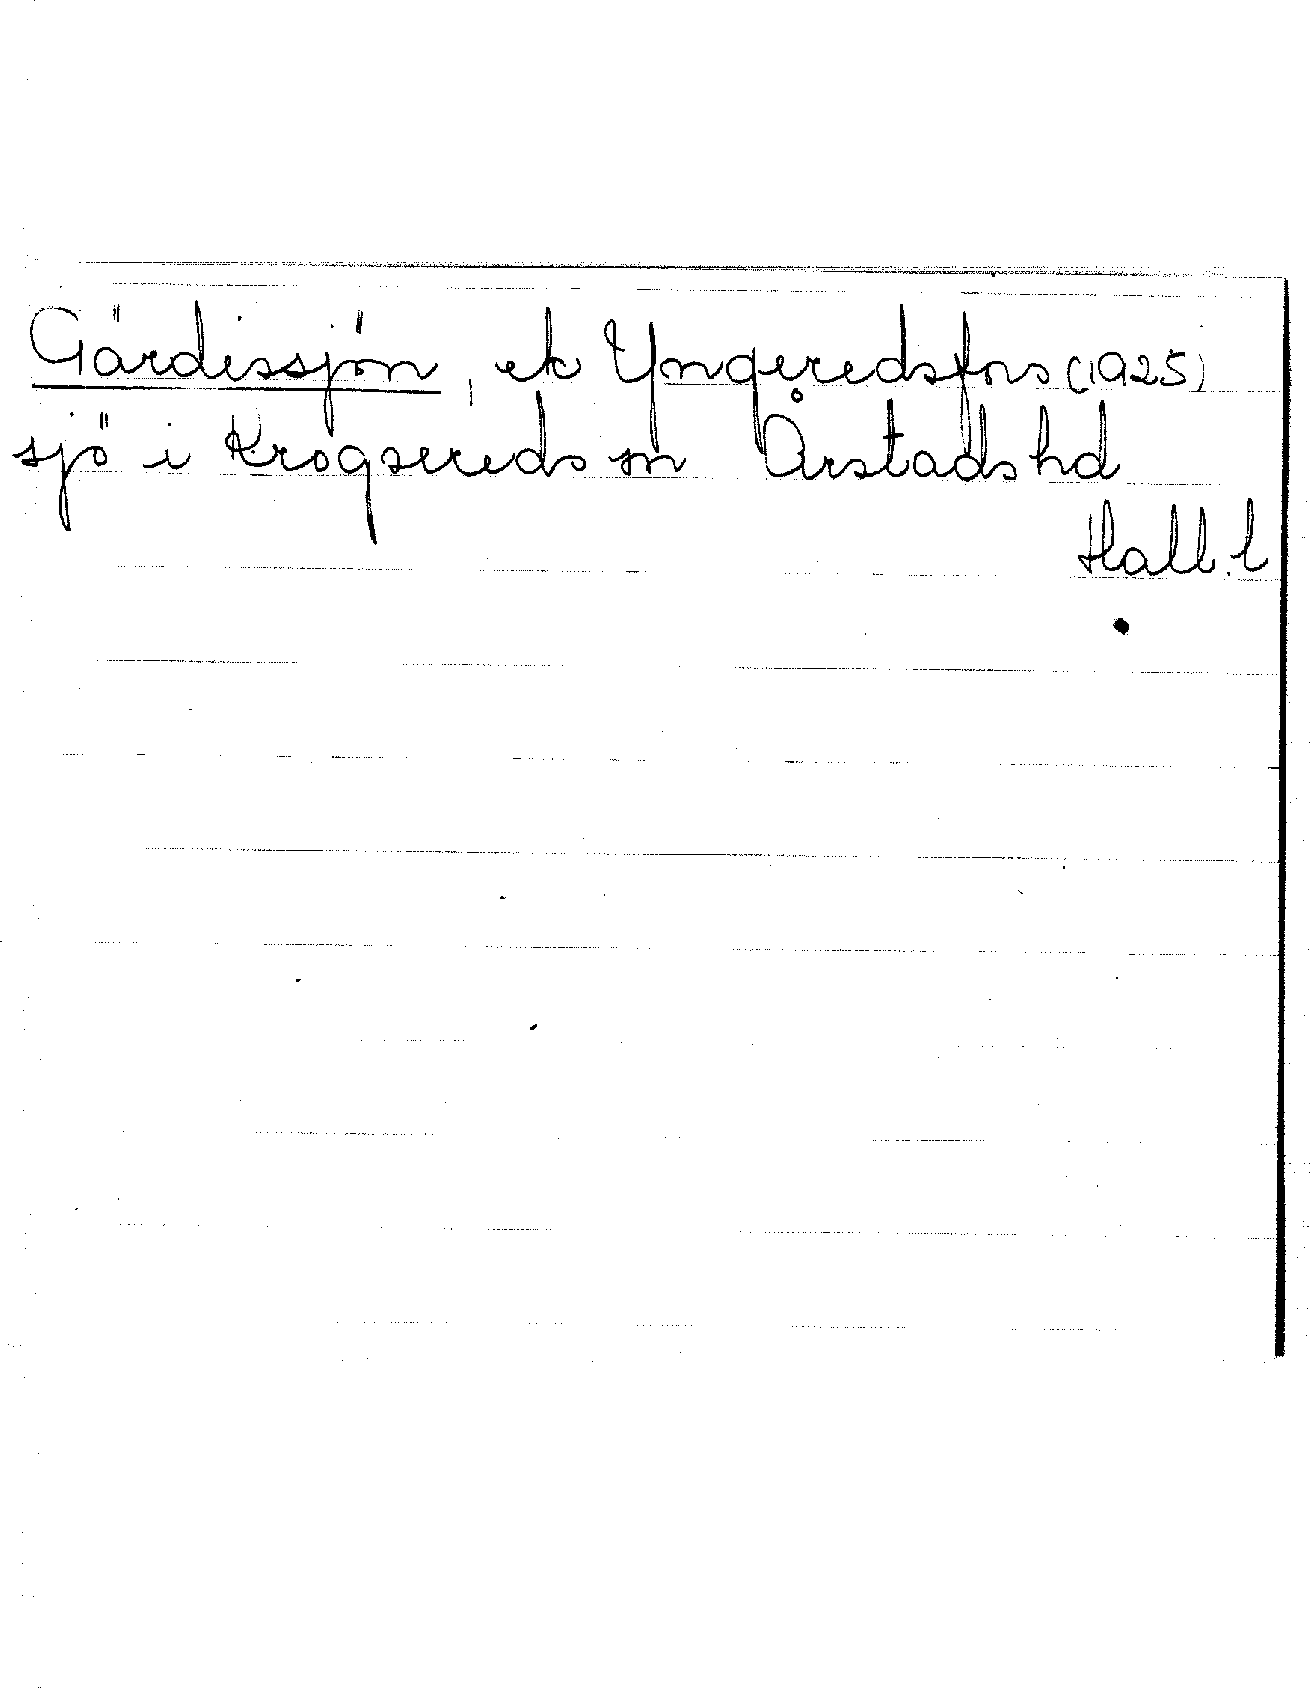 Gärdissjön, ek Yngeredsfors (1925)
sjö i Krogsereds sn Årstads hd
Hall. l